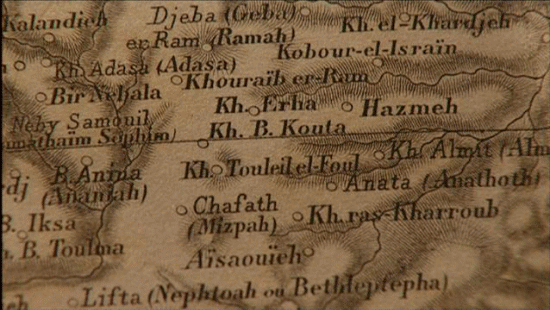 Kalandieh
Djeba (Geba)
Kh. el Khardjeh
er Ram (Ramah)
Kobour-el-Israïn
Kh. Adasa (Adasa)
Khouraïb er-Ram
Bir Nebala
Kh. Erha
Hazmeh
Neby Samouil
Kh. B. Kouta
Kh. Almit (Alm
B. Anina
(Ananiah)
Kh. Touleil el-Foul
Anata (Anathoth)
Chafath
(Mizpah)
Kh. ras-Kharroub
B. Iksa
B. Toulma
Aïsaouïeh
Lifta (Nephtoah ou Bethleptepha)